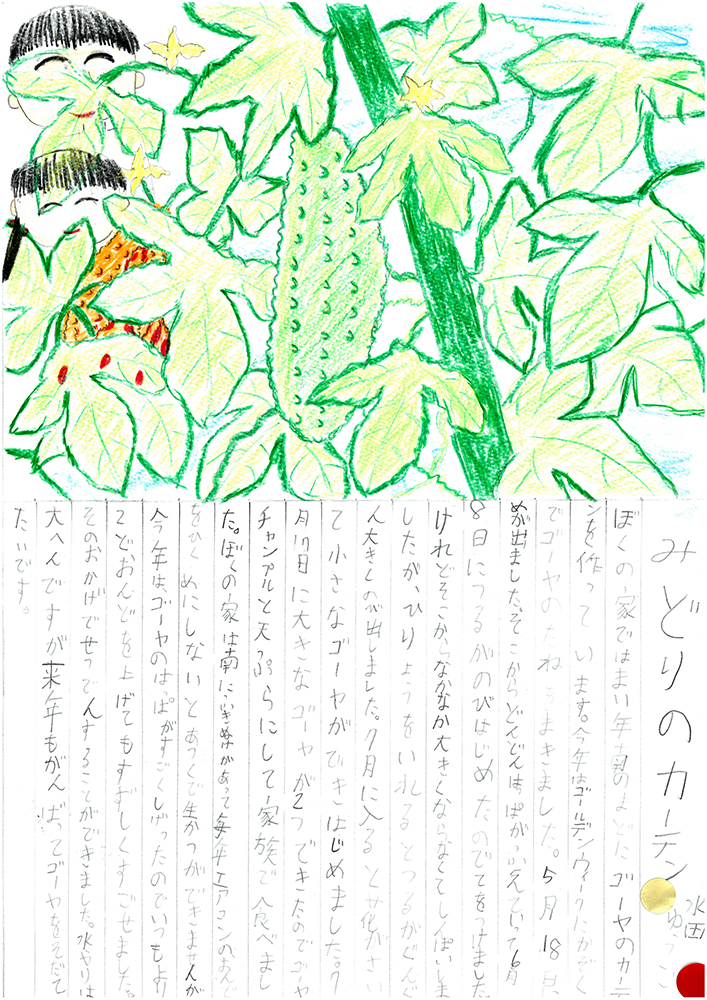 みどりのカーテン
水田 ゆうご
ぼくの家ではまい年南のまどにゴーヤのカーテ
ンを作っています。今年はゴールデンウィークにかぞく
でゴーヤのたねをまきました。5月18日、
めが出ました。そこからどんどんはっぱがふえていって6月
8日につるがのびはじめたのでてをつけました
けれどそこからなかなか大きくならなくてしんぱいしま
したが、ひりょうをいれるとつるがぐんぐ
ん大きくのび出しました。7月に入ると花がさい
て小さなゴーヤができはじめました。7
月17日に大きなゴーヤが2つできたのでゴーヤ
チャンプルと天ぷらにして家族で食べまし
た。ぼくの家は南にふきぬけがあって毎年エアコンのおんど
をひくめにしないとあつくて生かつができませんが
今年は、ゴーヤのはっぱがすごくしげったのでいつもより
2どおんどを上げてもすずしくすごせました。
そのおかげでせつでんすることができました。水やりは
大へんですが来年もがんばってゴーヤをそだて
たいです。